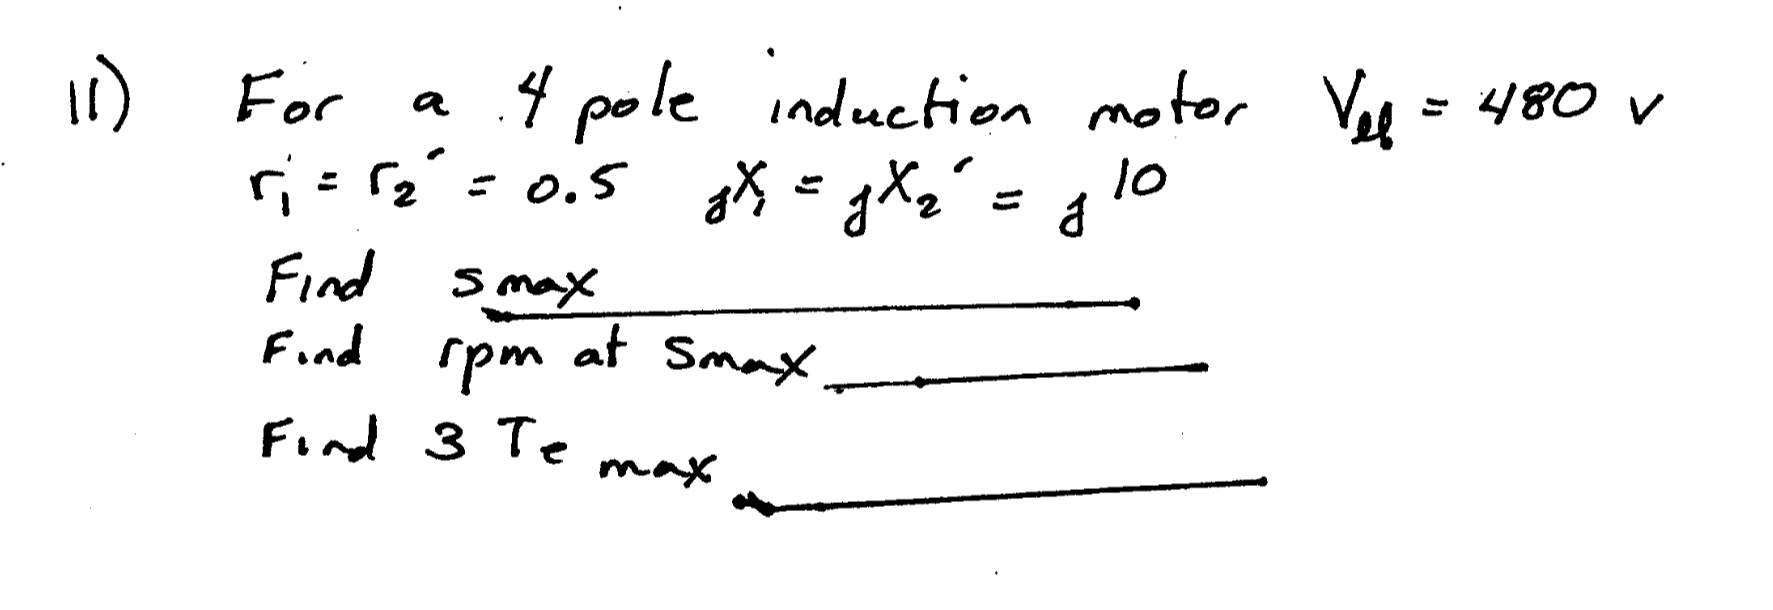 11) For a 4 pole induction motor Vll = 480 v
r1 = r2' = 0.5 jX1 = jX2' = j10
Find smax
Find rpm at smax
Find 3 Te max